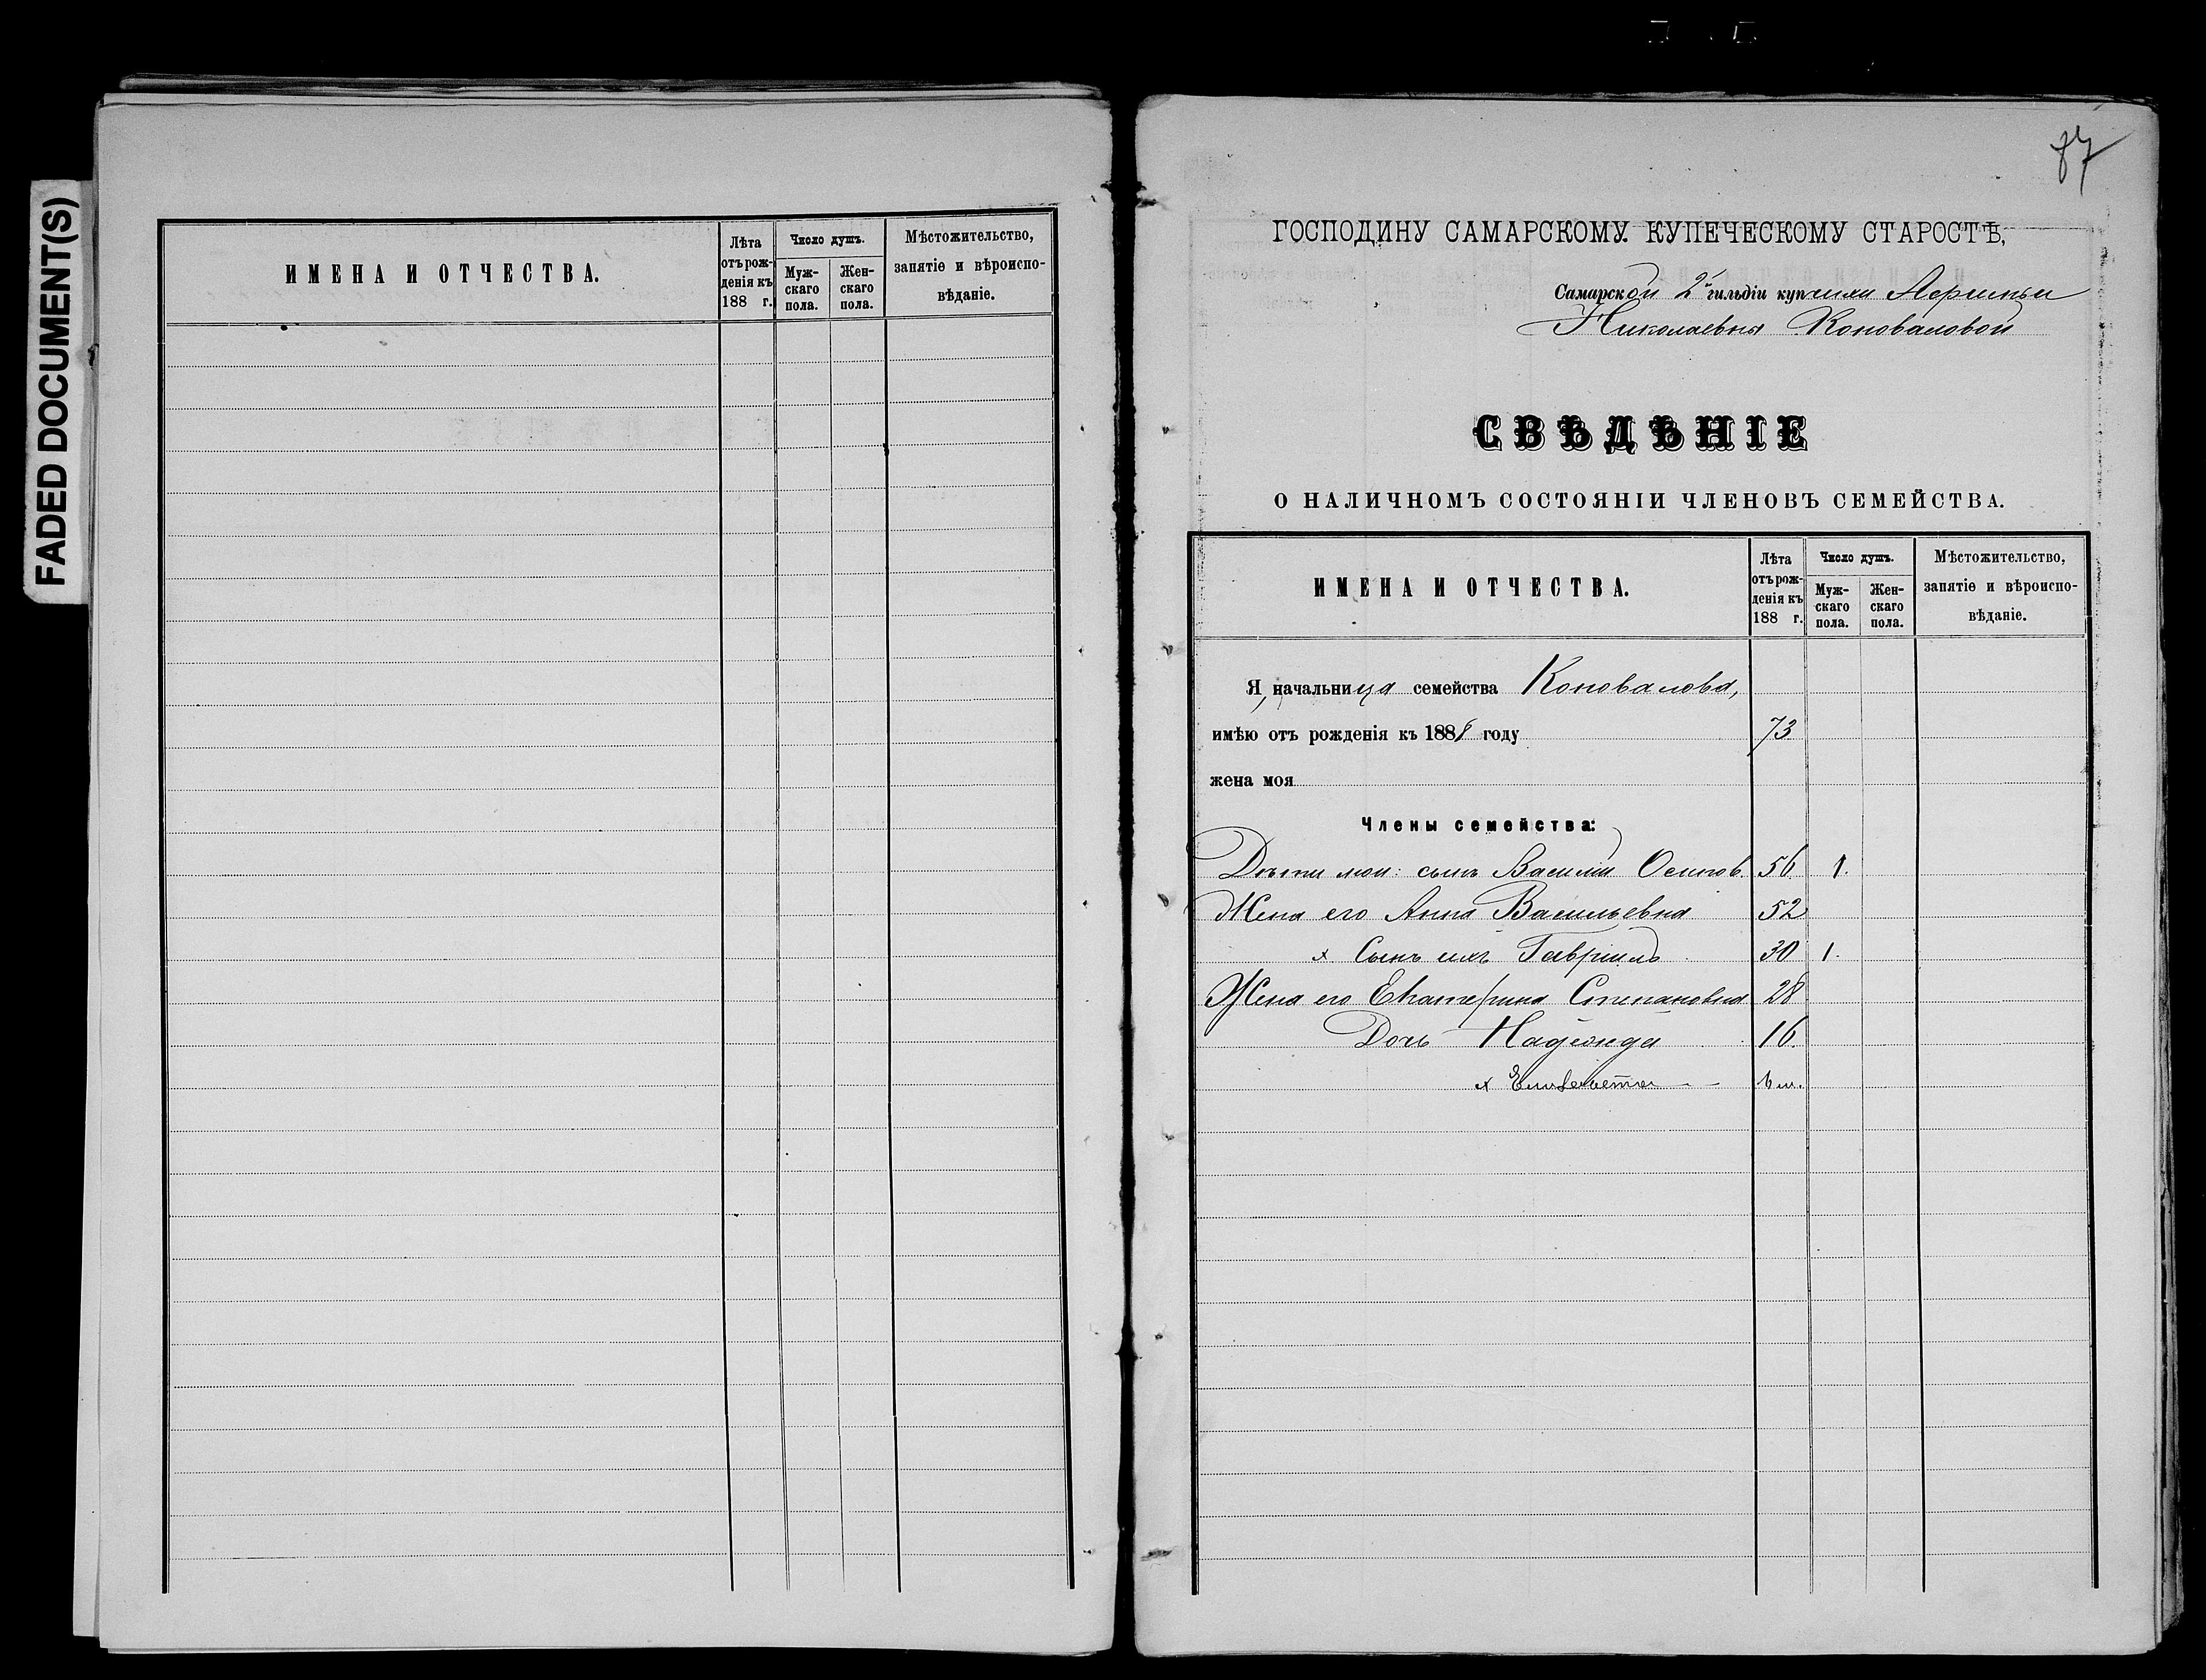 FADED DOCUMENT(S)
ИМЕНА И ОТЧЕСТВА.
Лѣта
отъ рож-
денія къ
188 г.
Число душъ.
Муж-
скаго
пола.
Жен-
скаго
пола.
Мѣстожительство,
запятіе и вѣроиспо-
вѣданіе.
87
ГОСПОДИНУ САМАРСКОМУ КУПЕЧЕСКОМУ СТАРОСТѢ,
Самарской 2й гильдіи купчихи
Николаевны Коноваловой
СВѢДѢНІЕ
О НАЛИЧНОМЪ СОСТОЯНІИ ЧЛЕНОВЪ СЕМЕЙСТВА.
ИМЕНА И ОТЧЕСТВА.
Лѣта
отъ рож-
денія къ
188 г.
Число душъ.
Муж-
скаго
пола.
Жен-
скаго
пола.
Мѣстожительство,
запятіе и вѣроиспо-
вѣданіе.
Я, начальница семейства Коновалова,
имѣю отъ рожденія къ 1888 году 73
жена моя
Члены семейства:
Дѣти мои: сынъ Василій Осипов. 56. 1.
Жена его Анна Васильевна 52
х Сынъ ихъ Гавріилъ 30 1.
Жена его Екатерина Степановна 28
Дочь Надежда 16.
х Елизавета